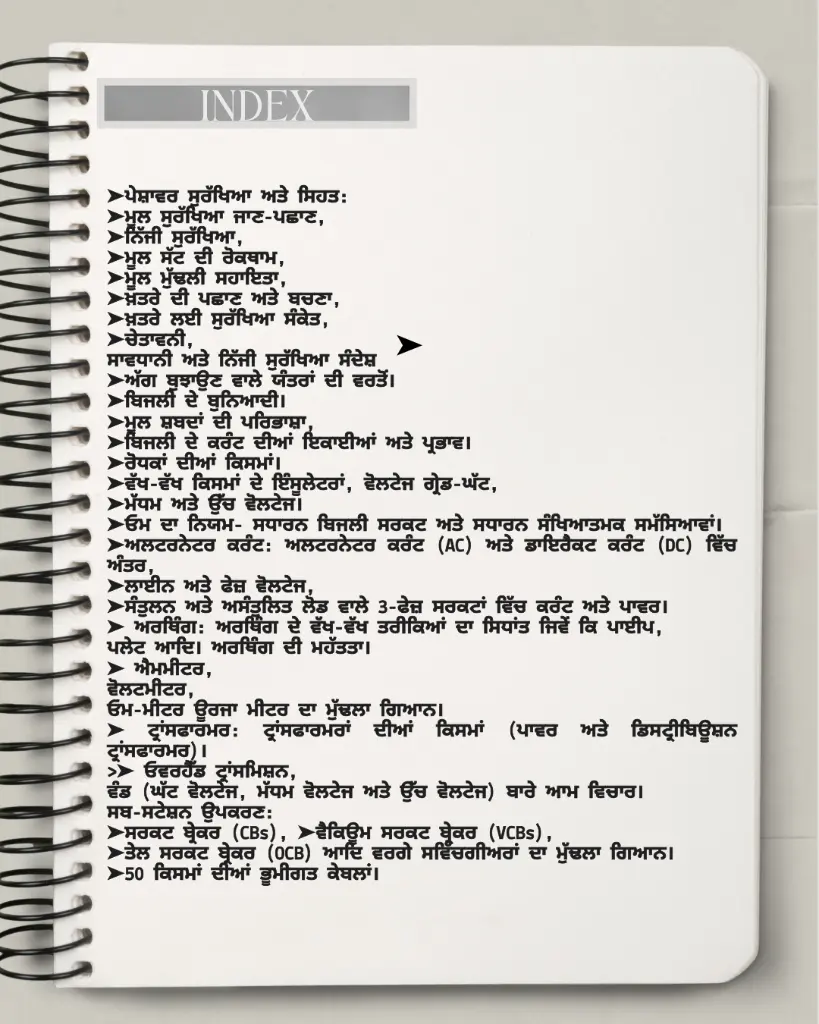 INDEX
➤ਪੇਸ਼ਾਵਰ ਸੁਰੱਖਿਆ ਅਤੇ ਸਿਹਤ:
➤ਮੂਲ ਸੁਰੱਖਿਆ ਜਾਣ-ਪਛਾਣ,
➤ਨਿੱਜੀ ਸੁਰੱਖਿਆ,
➤ਮੂਲ ਸੱਟ ਦੀ ਰੋਕਥਾਮ,
➤ਮੂਲ ਮੁੱਢਲੀ ਸਹਾਇਤਾ,
➤ਖ਼ਤਰੇ ਦੀ ਪਛਾਣ ਅਤੇ ਬਚਣਾ,
➤ਖ਼ਤਰੇ ਲਈ ਸੁਰੱਖਿਆ ਸੰਕੇਤ,
➤ਚੇਤਾਵਨੀ, ➤
ਸਾਵਧਾਨੀ ਅਤੇ ਨਿੱਜੀ ਸੁਰੱਖਿਆ ਸੰਦੇਸ਼
➤ਅੱਗ ਬੁਝਾਉਣ ਵਾਲੇ ਯੰਤਰਾਂ ਦੀ ਵਰਤੋਂ।
➤ਬਿਜਲੀ ਦੇ ਬੁਨਿਆਦੀ।
➤ਮੂਲ ਸ਼ਬਦਾਂ ਦੀ ਪਰਿਭਾਸ਼ਾ,
➤ਬਿਜਲੀ ਦੇ ਕਰੰਟ ਦੀਆਂ ਇਕਾਈਆਂ ਅਤੇ ਪ੍ਰਭਾਵ।
➤ਰੋਧਕਾਂ ਦੀਆਂ ਕਿਸਮਾਂ।
➤ਵੱਖ-ਵੱਖ ਕਿਸਮਾਂ ਦੇ ਇੰਸੂਲੇਟਰਾਂ, ਵੋਲਟੇਜ ਗ੍ਰੇਡ-ਘੱਟ,
➤ਮੱਧਮ ਅਤੇ ਉੱਚ ਵੋਲਟੇਜ।
➤ਓਮ ਦਾ ਨਿਯਮ- ਸਧਾਰਨ ਬਿਜਲੀ ਸਰਕਟ ਅਤੇ ਸਧਾਰਨ ਸੰਖਿਆਤਮਕ ਸਮੱਸਿਆਵਾਂ।
➤ਅਲਟਰਨੇਟਰ ਕਰੰਟ: ਅਲਟਰਨੇਟਰ ਕਰੰਟ (AC) ਅਤੇ ਡਾਇਰੈਕਟ ਕਰੰਟ (DC) ਵਿੱਚ
ਅੰਤਰ,
➤ਲਾਈਨ ਅਤੇ ਫੇਜ਼ ਵੋਲਟੇਜ,
➤ਸੰਤੁਲਨ ਅਤੇ ਅਸੰਤੁਲਿਤ ਲੋਡ ਵਾਲੇ 3-ਫੇਜ਼ ਸਰਕਟਾਂ ਵਿੱਚ ਕਰੰਟ ਅਤੇ ਪਾਵਰ।
➤ ਅਰਥਿੰਗ: ਅਰਥਿੰਗ ਦੇ ਵੱਖ-ਵੱਖ ਤਰੀਕਿਆਂ ਦਾ ਸਿਧਾਂਤ ਜਿਵੇਂ ਕਿ ਪਾਈਪ,
ਪਲੇਟ ਆਦਿ। ਅਰਥਿੰਗ ਦੀ ਮਹੱਤਤਾ।
➤ ਐਮਮੀਟਰ,
ਵੋਲਟਮੀਟਰ,
ਓਮ-ਮੀਟਰ ਊਰਜਾ ਮੀਟਰ ਦਾ ਮੁੱਢਲਾ ਗਿਆਨ।
➤ ਟ੍ਰਾਂਸਫਾਰਮਰ: ਟ੍ਰਾਂਸਫਾਰਮਰਾਂ ਦੀਆਂ ਕਿਸਮਾਂ (ਪਾਵਰ ਅਤੇ ਡਿਸਟ੍ਰੀਬਿਊਸ਼ਨ
ਟ੍ਰਾਂਸਫਾਰਮਰ)।
>➤ ਓਵਰਹੈੱਡ ਟ੍ਰਾਂਸਮਿਸ਼ਨ,
ਵੰਡ (ਘੱਟ ਵੋਲਟੇਜ, ਮੱਧਮ ਵੋਲਟੇਜ ਅਤੇ ਉੱਚ ਵੋਲਟੇਜ) ਬਾਰੇ ਆਮ ਵਿਚਾਰ।
ਸਬ-ਸਟੇਸ਼ਨ ਉਪਕਰਣ:
➤ਸਰਕਟ ਬ੍ਰੇਕਰ (CBs), ➤ਵੈਕਿਊਮ ਸਰਕਟ ਬ੍ਰੇਕਰ (VCBs),
➤ਤੇਲ ਸਰਕਟ ਬ੍ਰੇਕਰ (OCB) ਆਦਿ ਵਰਗੇ ਸਵਿੱਚਗੀਅਰਾਂ ਦਾ ਮੁੱਢਲਾ ਗਿਆਨ।
➤50 ਕਿਸਮਾਂ ਦੀਆਂ ਭੂਮੀਗਤ ਕੇਬਲਾਂ।